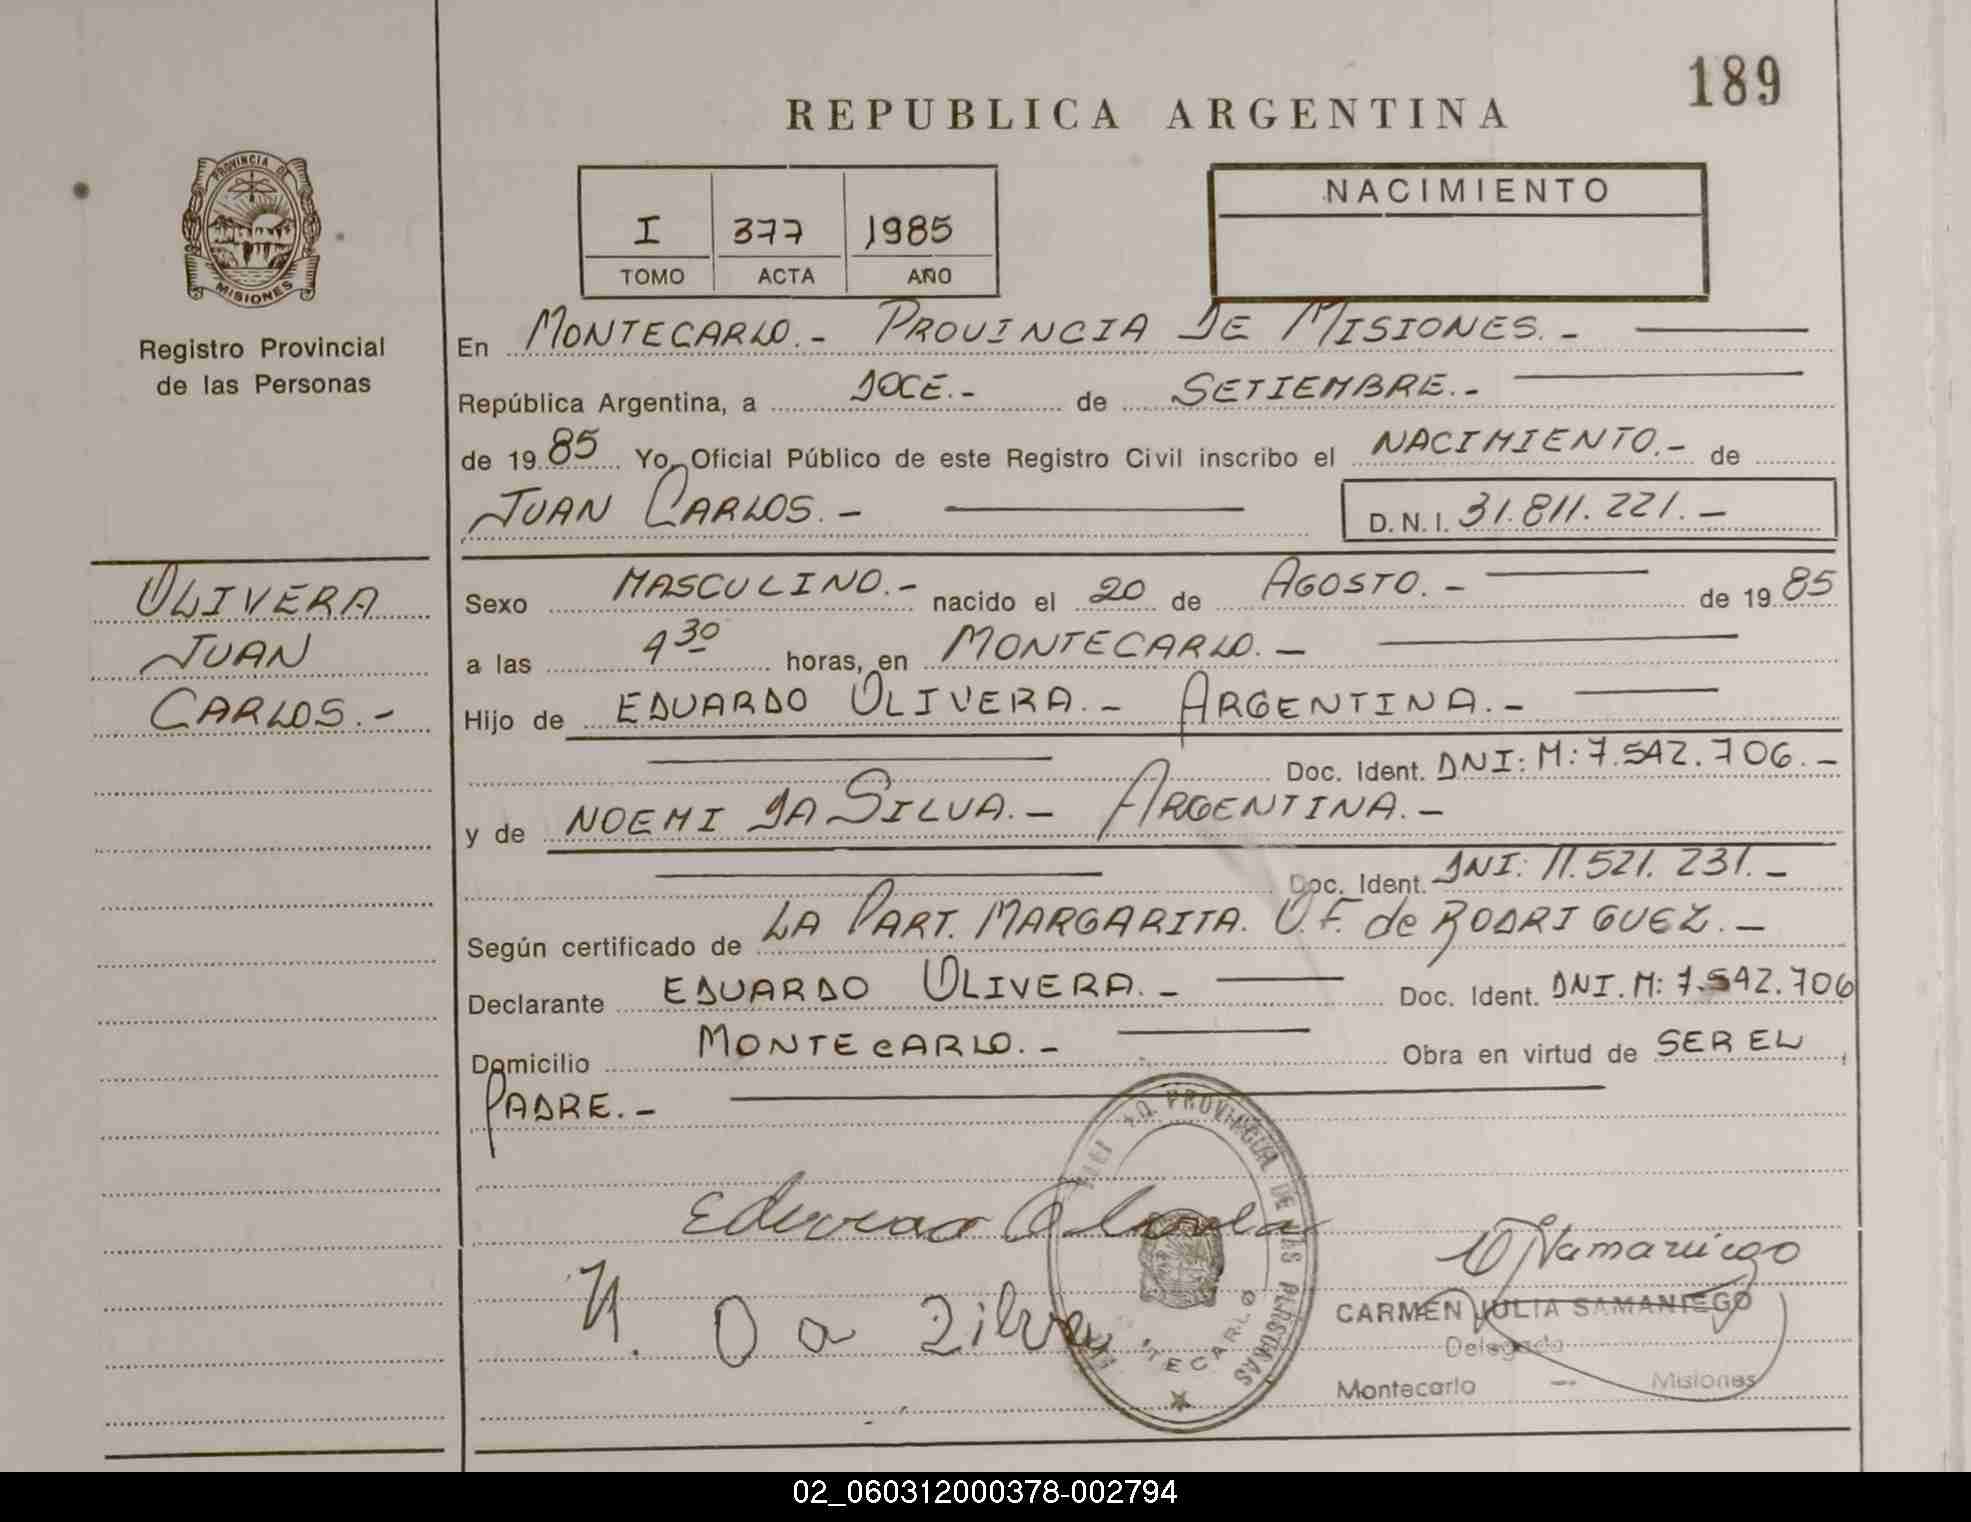 189
REPUBLICA ARGENTINA
PROVINCIA DE
MISIONES
Registro Provincial
de las Personas
I 377 1985
TOMO ACTA AÑO
NACIMIENTO
En MONTECARLO.- PROVINCIA DE MISIONES.-
República Argentina, a DOCE.- de SETIEMBRE.-
de 19 85 Yo, Oficial Público de este Registro Civil inscribo el NACIMIENTO.- de
JUAN CARLOS.- D.N.I. 31.811.221.-
OLIVERA
JUAN
CARLOS.-
Sexo MASCULINO.- nacido el 20 de AGOSTO.- de 19 85
a las 4 30 horas, en MONTECARLO.-
Hijo de EDUARDO OLIVERA.- ARGENTINA.-
Doc. Ident. DNI: M: 7.542.706.-
y de NOEMI DA SILVA.- ARGENTINA.-
Doc. Ident. DNI: 11.521.231.-
Según certificado de LA PART. MARGARITA. O.F. de RODRIGUEZ.-
Declarante EDUARDO OLIVERA.- Doc. Ident. DNI. M: 7.542.706
Domicilio MONTECARLO.- Obra en virtud de SER EL
PADRE.-
PROVINCIAL DE LAS PERSONAS
Eduardo Olivera
N. Da Silva
CARMEN JULIA SAMANIEGO
Delegada
Montecarlo - Misiones
02_060312000378-002794